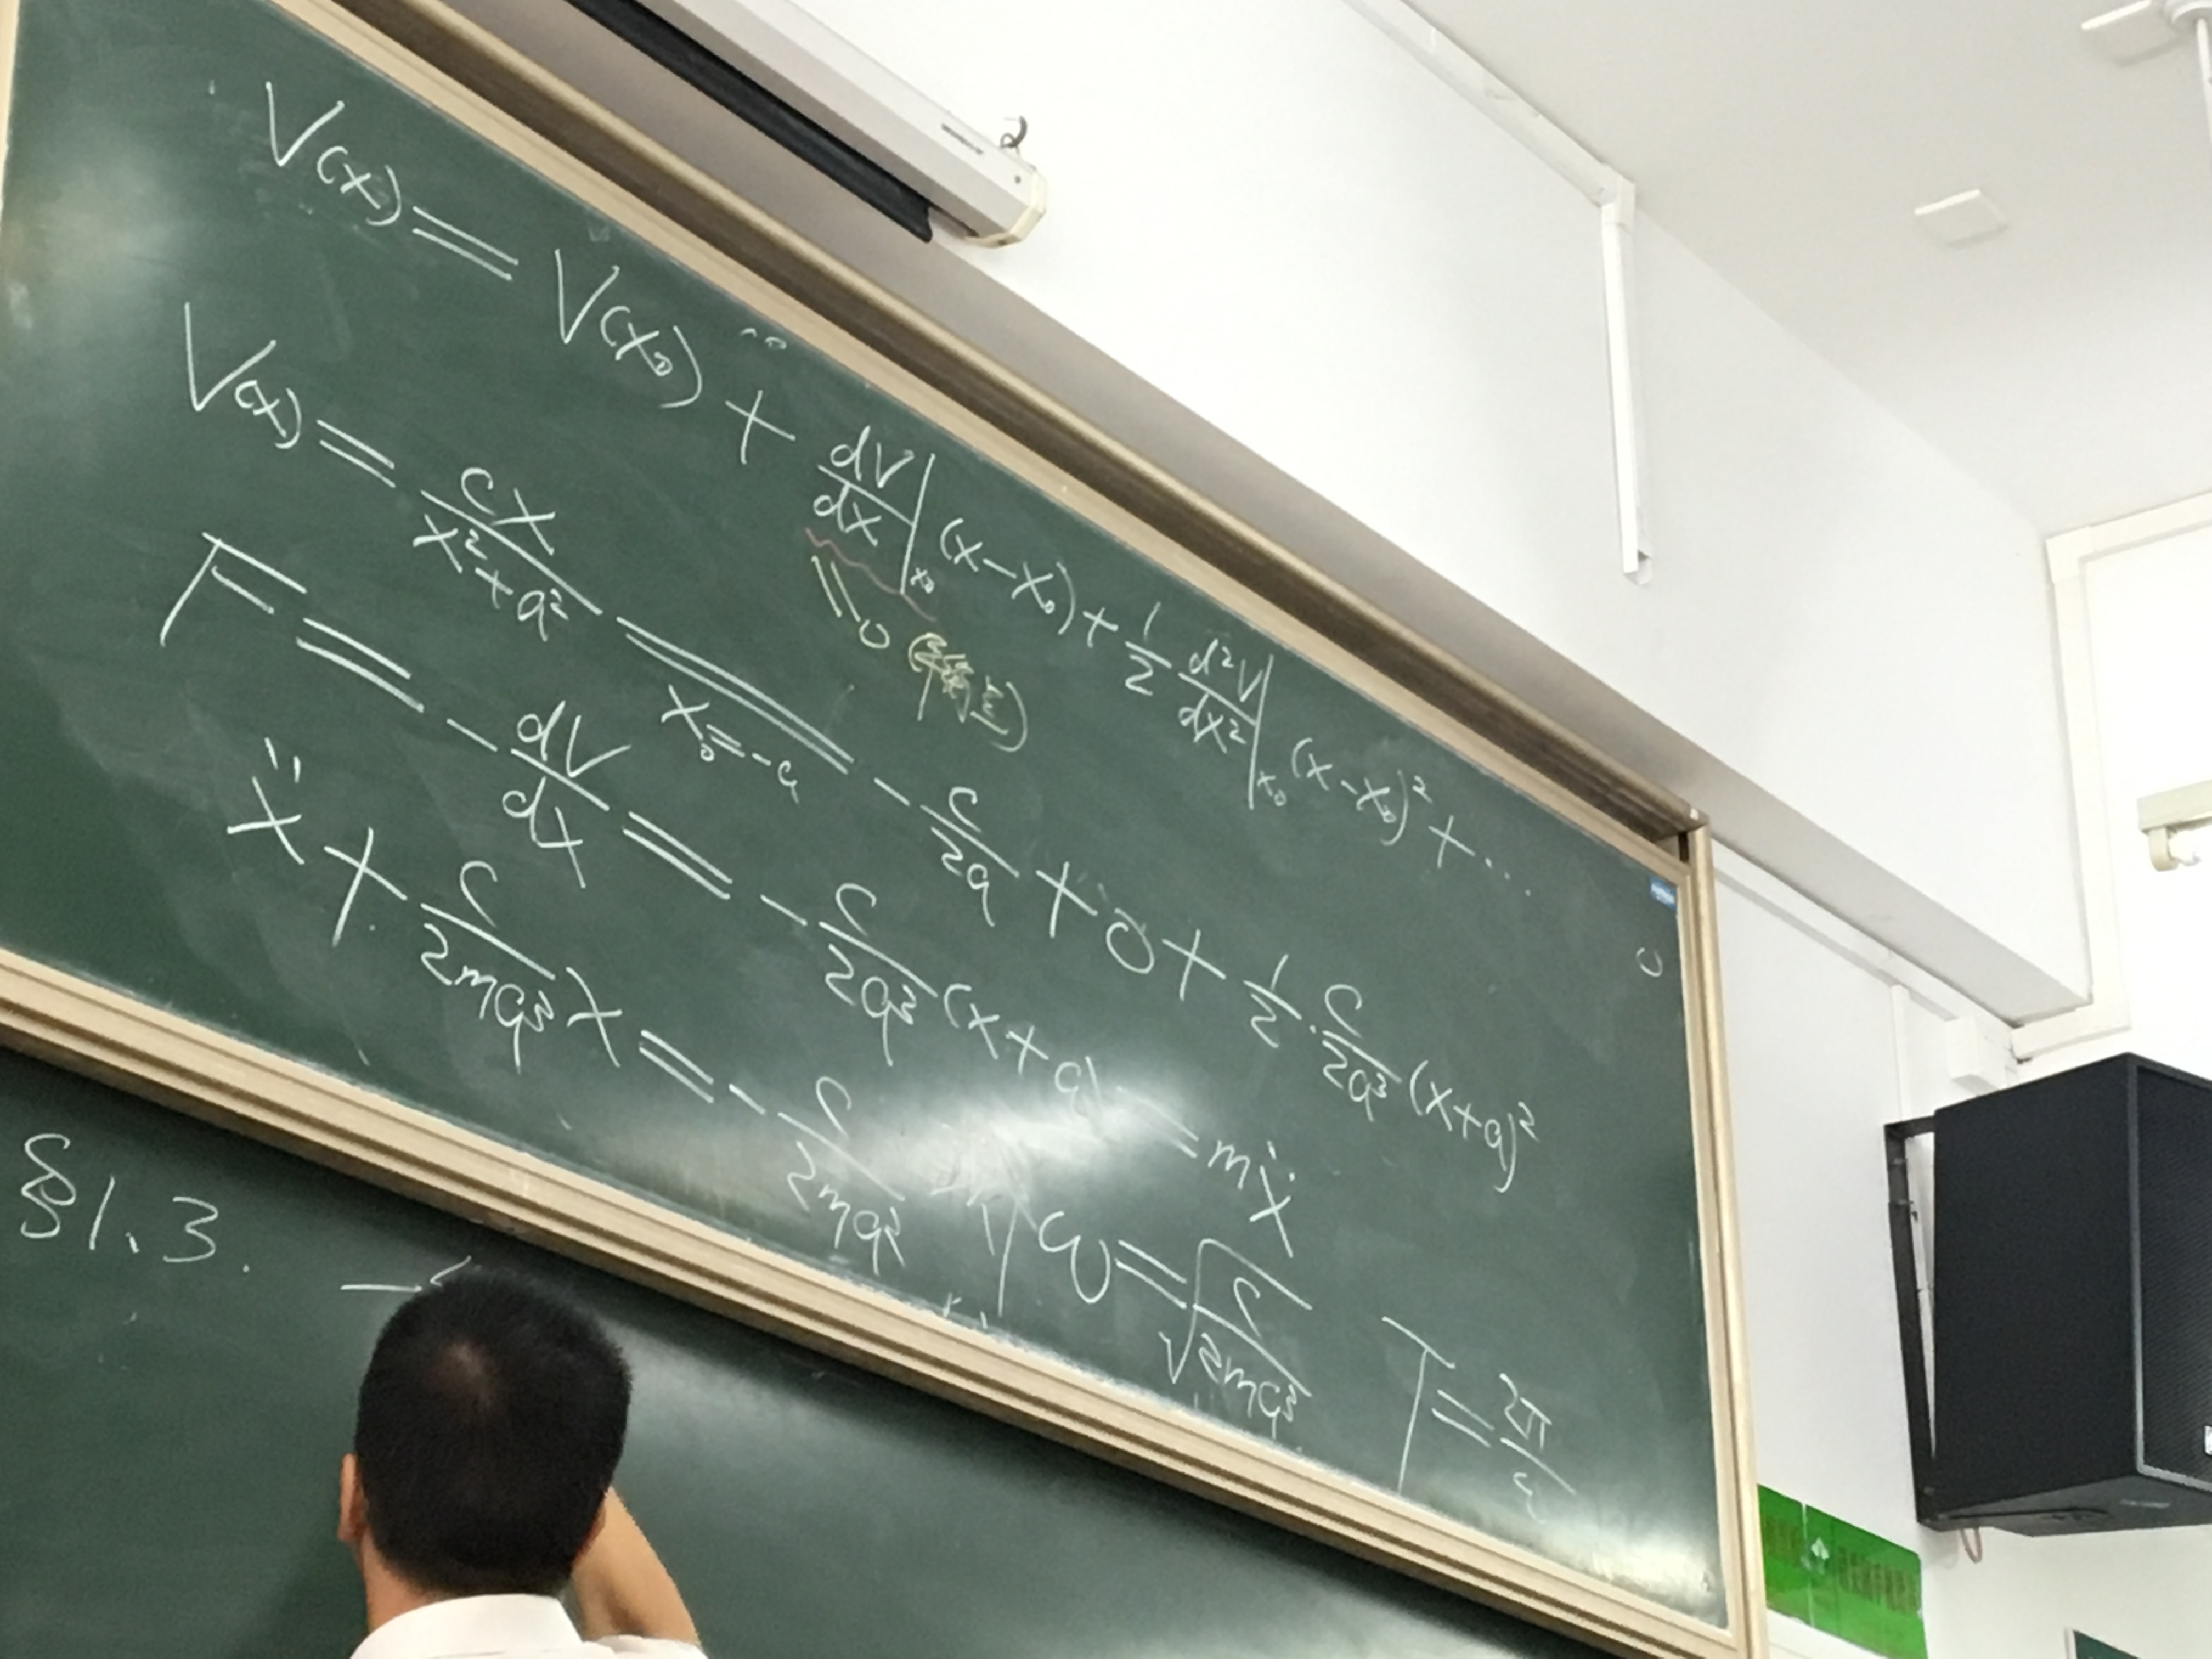 V(x) = V(x₀) + dV/dx|x₀ (x-x₀) + 1/2 d²V/dx²|x₀ (x-x₀)² + ...
= 0
V(x) = cx/(x²+a²) = -c/2a + 0 + 1/2 · c/2a³ (x+a)²
x₀=-a
F = -dV/dx = -c/2a³ (x+a) = mẍ
ẍ + c/2ma³ x = -c/2ma² ω = √(c/2ma³) T = 2π/
§1.3.